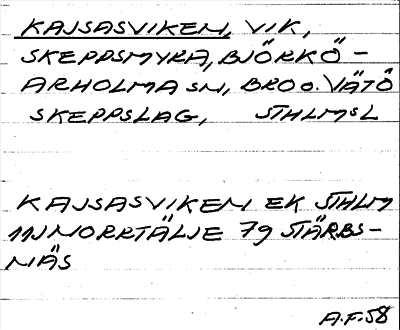 KAJSASVIKEN, VIK,
SKEPPSMYRA, BJÖRKÖ-
ARHOLMA SN, BRO O. VÄTÖ
SKEPPSLAG, STHLMSL
KAJSASVIKEN EK STHLM
11J NORRTÄLJE 79 STÄRBS-
NÄS
A.F. 58